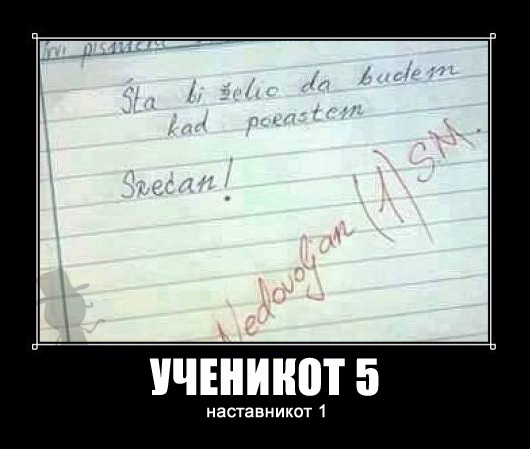 Prvi pismeni
Šta bi želio da budem
kad porastem
Srećan!
Nedovoljan (1) S.M.
УЧЕНИКОТ 5
наставникот 1